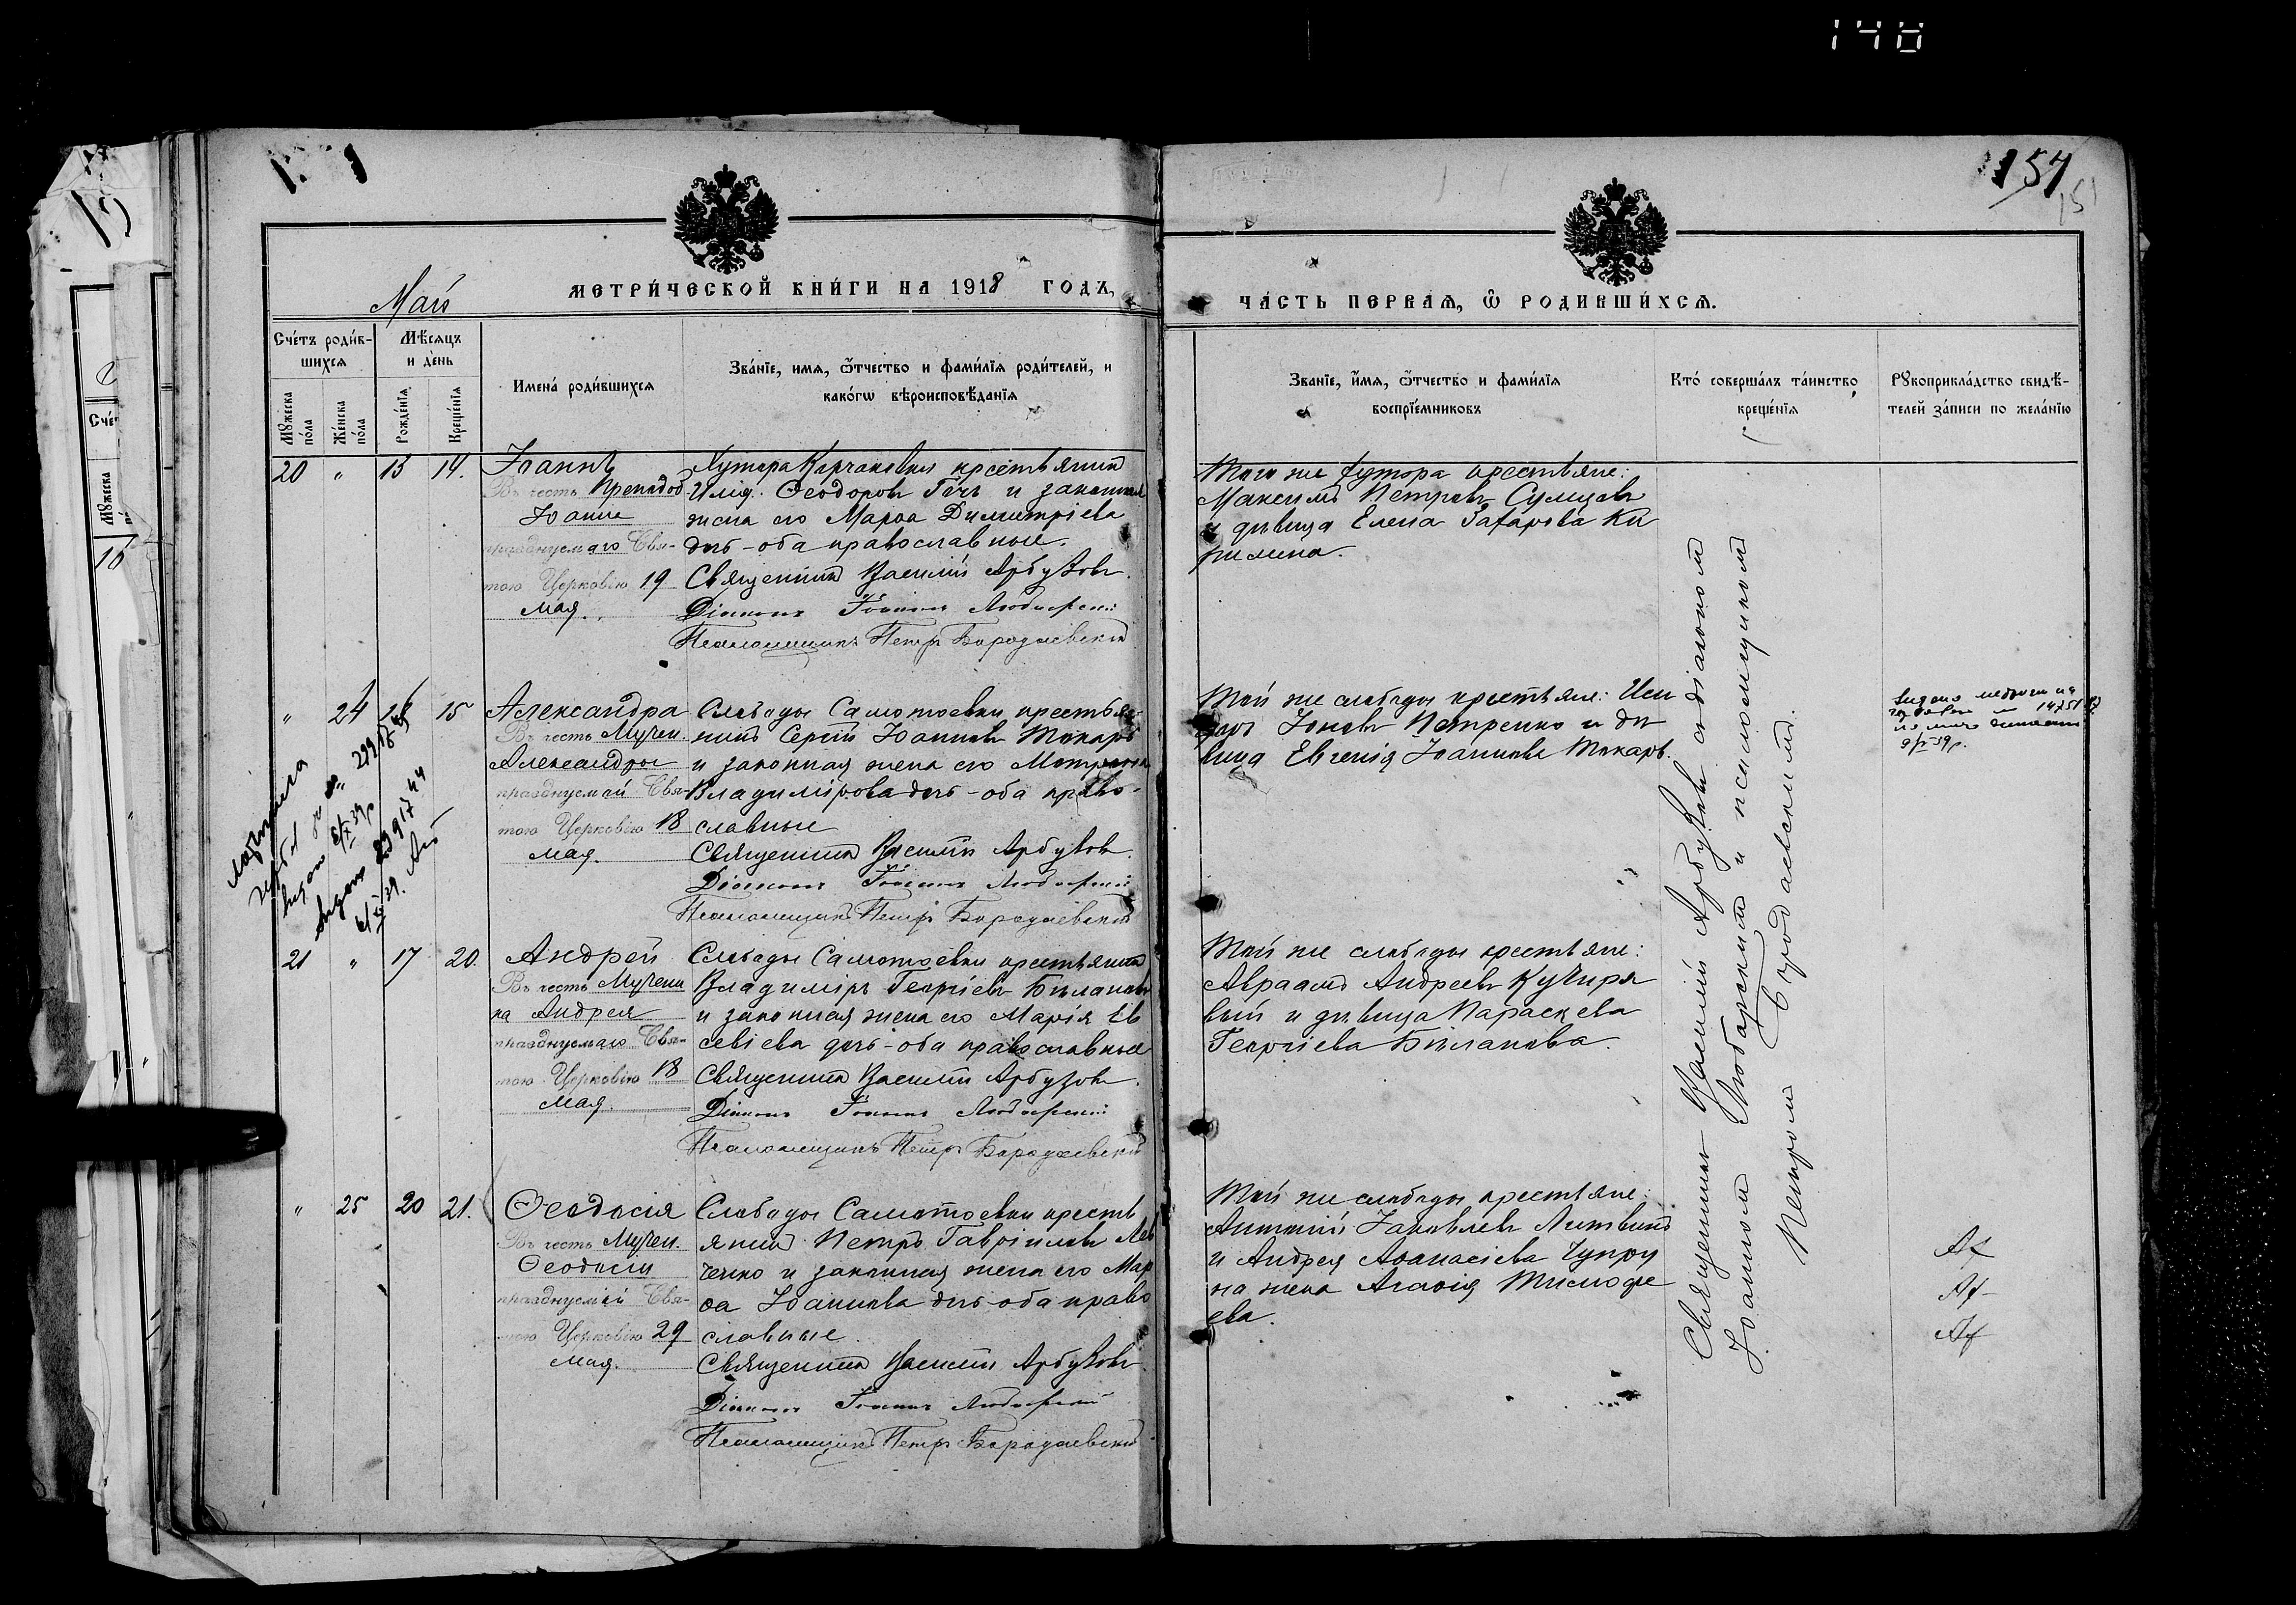 148
157
151
Май
МЕТРИ́ЧЕСКОЙ КНИ́ГИ НА 1918 ГОДЪ,
ЧА́СТЬ ПЕРВАѦ, Ѿ РОДИВШИ́ХСѦ.
Сче́тъ роди́в-
шихсѧ
Мѣ́сѧцъ
и де́нь
Мꙋ́жеска по́ла
Же́нска по́ла
Рожде́нїѧ
Креще́нїѧ
Имена̀ роди́вшихсѧ
Зва́нїе, имѧ, ѿчество и фами́лїѧ роди́телей, и
како́гѡ вѣроисповѣ́данїѧ
Зва́нїе, и́мѧ, ѿчество и фами́лїѧ
воспрїе́мниковъ
Кто̀ соверша́лъ та́инство
креще́нїѧ
Рꙋкоприкла́дство свидѣ́-
телей за́писи по жела́нїю
20 " 13 14.
Іоаннъ
Въ честь Преподоб.
Іоанна
празднуемаго Свя-
тою Церковію 19
мая.
Хутора крестьянинъ
Илія Ѳеодоровъ и законная
жена его Марѳа Димитріева
дочь - оба православные.
Священникъ Василій Арбузовъ
Діаконъ Іоаннъ Любарскій
Псаломщикъ Петръ Бородаевскій
Того же хутора крестьяне:
Максимъ Петровъ Сумцовъ
и дѣвица Елена Захарова Ки
" 24 15
Александра
Въ честь Мучен.
Александры
празднуемой Свя-
тою Церковію 18
мая.
Слободы Самотоевки крестья-
нинъ Сергій Іоанновъ Токарь
и законная жена его Матрона
Владимірова дочь - оба право-
славные
Священникъ Василій Арбузовъ
Діаконъ Іоаннъ Любарскій
Псаломщикъ Петръ Бородаевскій
Той же слободы крестьяне: Иси
доръ Іоновъ Петренко и дѣ
вица Евгенія Іоаннова Токарь.
21 " 17 20.
Андрей
Въ честь Мучени
ка Андрея
празднуемаго Свя-
тою Церковію 18
мая.
Слободы Самотоевки крестьянинъ
Владиміръ Георгіевъ Билановъ
и законная жена его Марія Ев
севіева дочь - оба православные
Священникъ Василій Арбузовъ
Діаконъ Іоаннъ Любарскій
Псаломщикъ Петръ Бородаевскій
Той же слободы крестьяне:
Авраамъ Андреевъ Кучеря
вый и дѣвица Параскева
Георгіева Биланова.
" 25 20 21.
Ѳеодосія
Въ честь Мучен.
Ѳеодосіи
празднуемой Свя-
тою Церковію 29
мая.
Слободы Самотоевки кресть
янинъ Петръ Гавріиловъ Лев
ченко и законная жена его Мар
ѳа Іоаннова дочь - оба право
славные.
Священникъ Василій Арбузовъ
Діаконъ Іоаннъ Любарскій
Псаломщикъ Петръ Бородаевскій
Той же слободы крестьяне:
Антоній Іаковлевъ Литвинъ
и Андрея Аѳанасіева Чупру
на жена Агаѳія Тимоѳе
ева.
Священникъ Василій Арбузовъ съ діакономъ
Іоанномъ Любарскимъ и псаломщикомъ
Петромъ Бородаевскимъ.